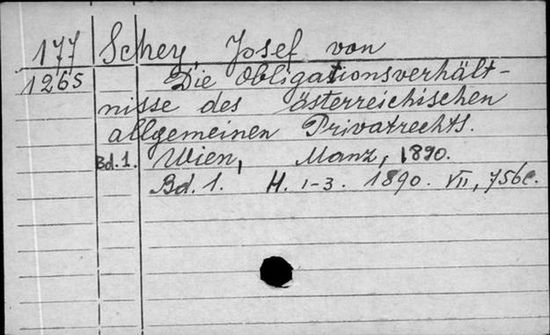 177 Schey, Josef von
1265 Die Obligationsverhält-
nisse des österreichischen
allgemeinen Privatrechts.
Bd. 1. Wien, Manz, 1890.
Bd. 1. H. 1-3. 1890. VII, 756 c.